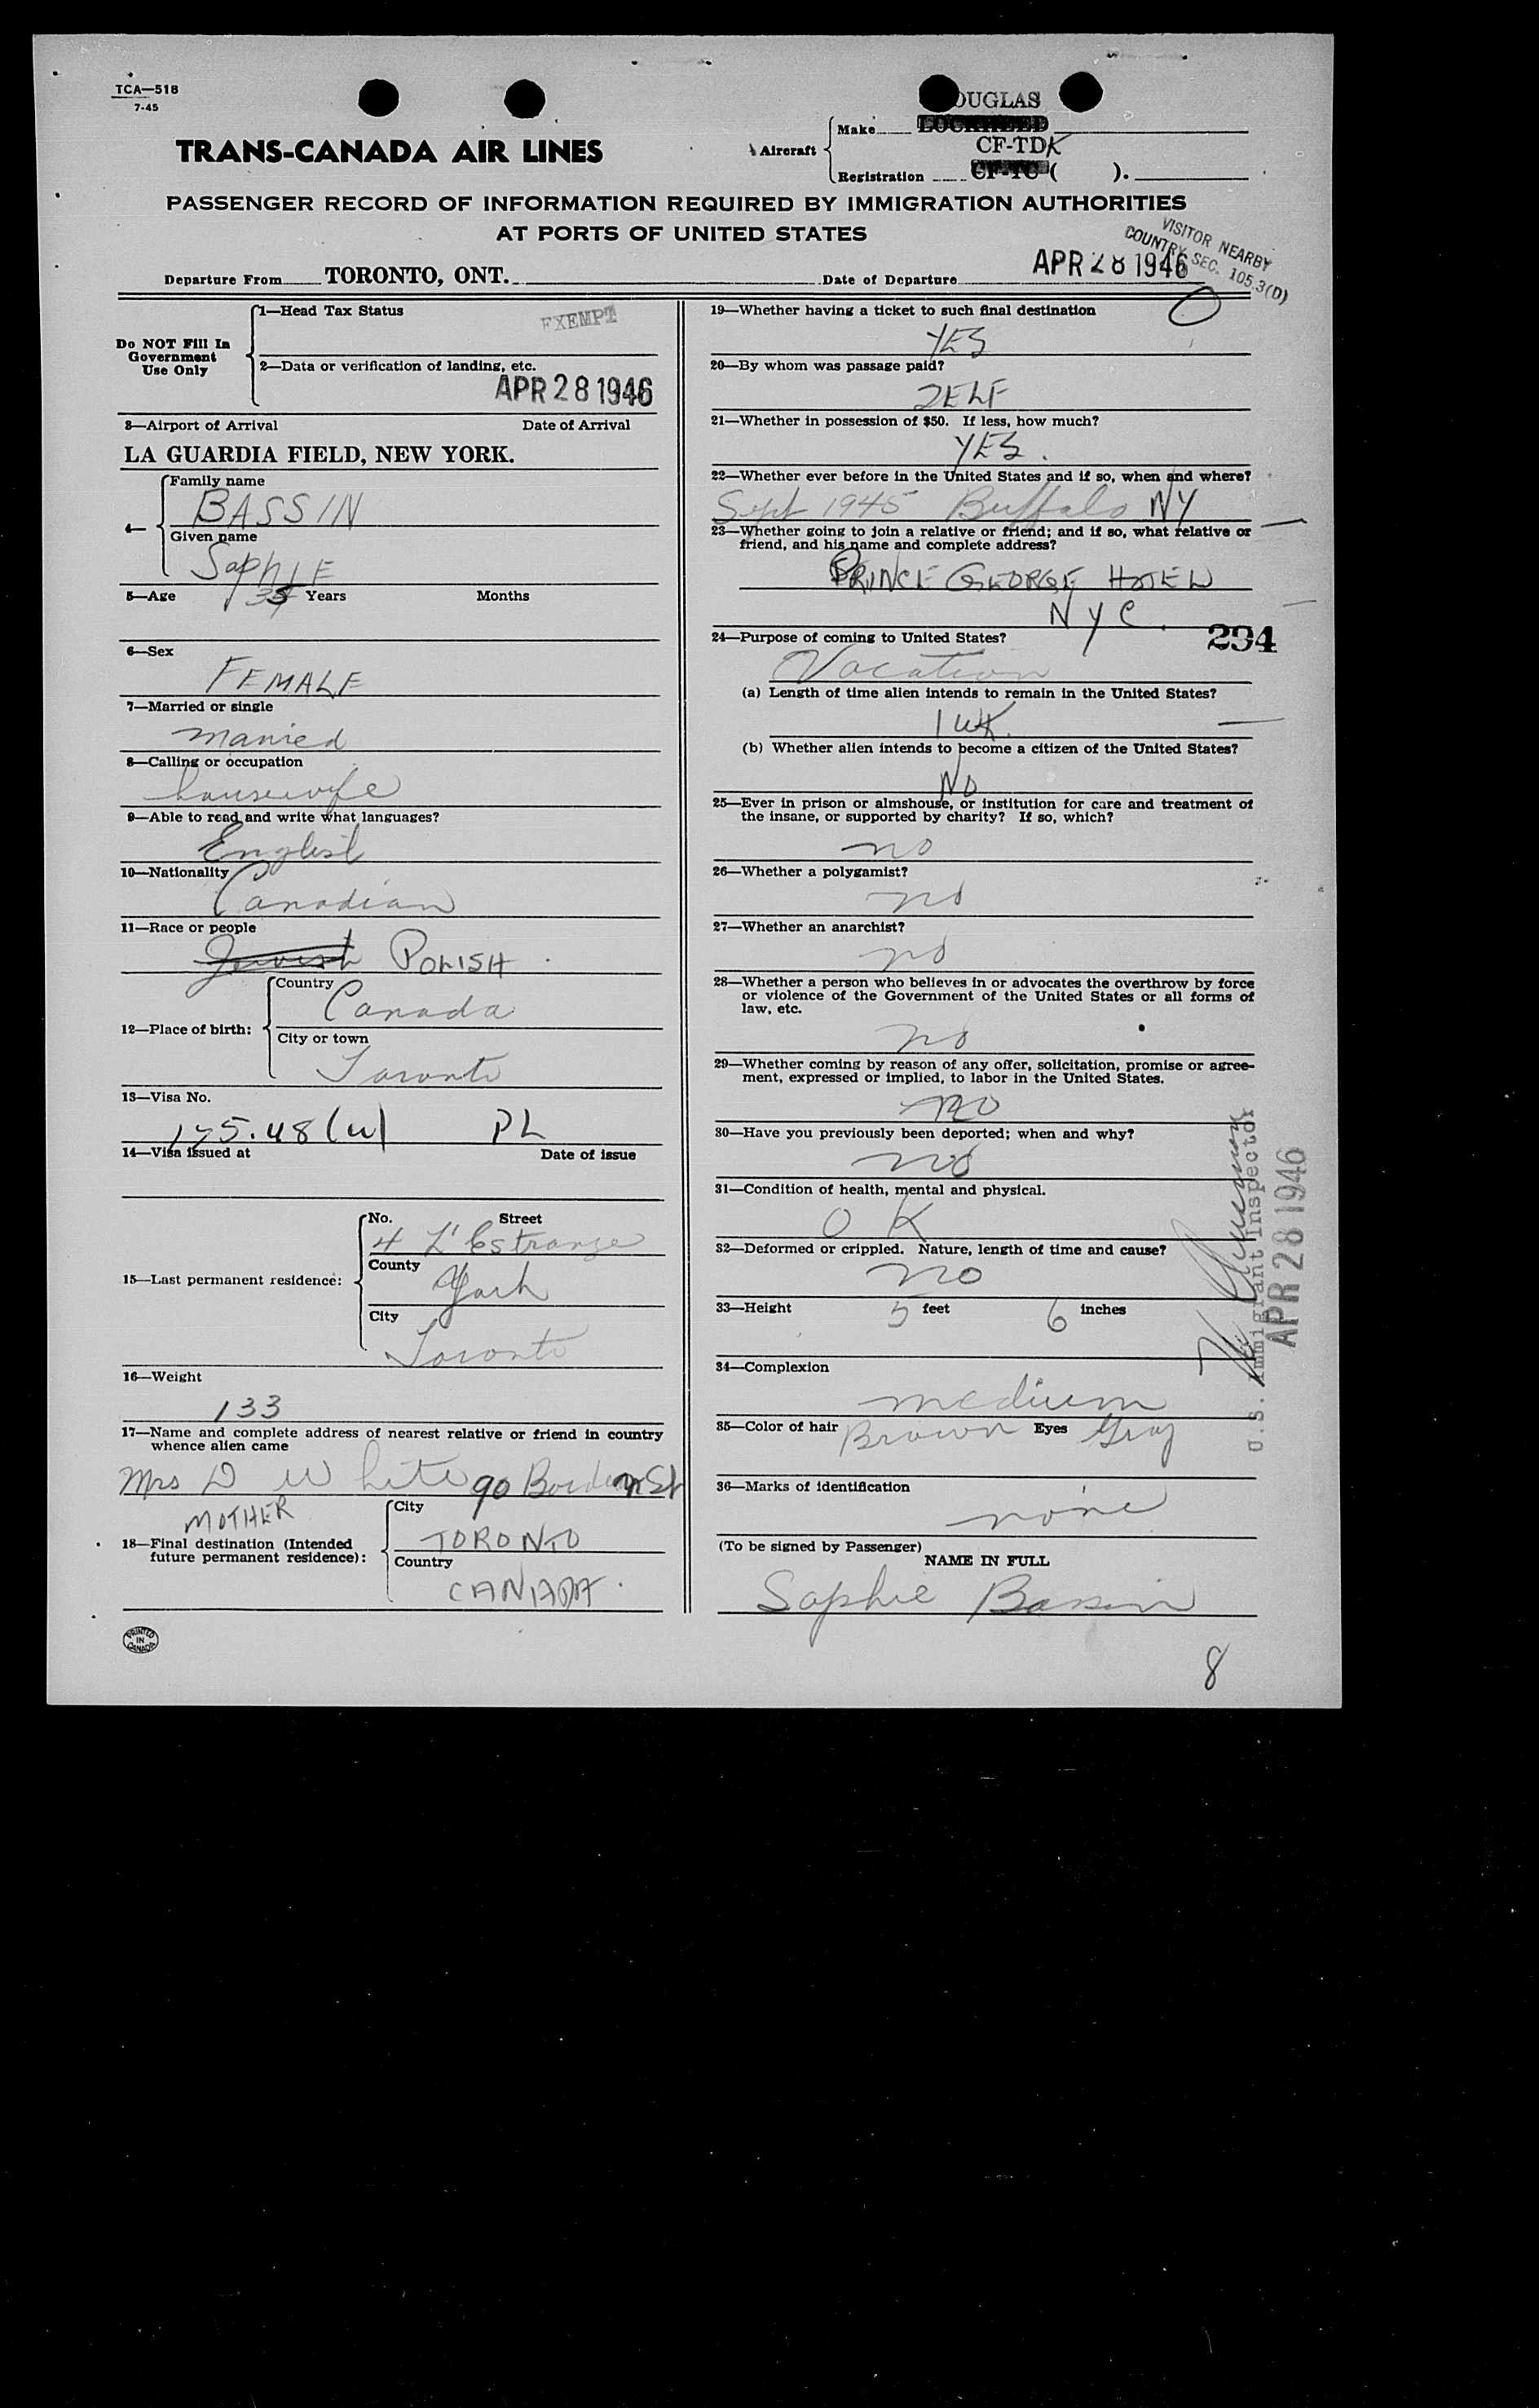 TCA—518
7-45
OUGLAS
Make LOCKHEED
TRANS-CANADA AIR LINES
Aircraft
CF-TDK
Registration CF-TC ( ).
PASSENGER RECORD OF INFORMATION REQUIRED BY IMMIGRATION AUTHORITIES
AT PORTS OF UNITED STATES
VISITOR NEARBY
COUNTRY SEC. 105.3(D)
Departure From TORONTO, ONT. Date of Departure APR 28 1946
Do NOT Fill In
Government
Use Only
1—Head Tax Status
EXEMPT
2—Data or verification of landing, etc.
APR 28 1946
3—Airport of Arrival Date of Arrival
LA GUARDIA FIELD, NEW YORK.
4—
Family name
BASSIN
Given name
SophIE
5—Age 35 Years Months
6—Sex
FEMALE
7—Married or single
married
8—Calling or occupation
housewife
9—Able to read and write what languages?
English
10—Nationality
Canadian
11—Race or people
Jewish POLISH
12—Place of birth:
Country
Canada
City or town
Toronto
13—Visa No.
175.48 (w) PL
14—Visa issued at Date of issue
15—Last permanent residence:
No. Street
4 L'Estrange
County
York
City
Toronto
16—Weight
133
17—Name and complete address of nearest relative or friend in country
whence alien came
Mrs D White 90 Borden St
MOTHER
18—Final destination (Intended
future permanent residence):
City
TORONTO
Country
CANADA.
PRINTED
IN
CANADA
19—Whether having a ticket to such final destination
YES
20—By whom was passage paid?
SELF
21—Whether in possession of $50. If less, how much?
YES.
22—Whether ever before in the United States and if so, when and where?
Sept 1945 Buffalo NY
23—Whether going to join a relative or friend; and if so, what relative or
friend, and his name and complete address?
PRINCE GEORGE HOTEL
NYC.
294
24—Purpose of coming to United States?
Vacation
(a) Length of time alien intends to remain in the United States?
1 WK.
(b) Whether alien intends to become a citizen of the United States?
NO
25—Ever in prison or almshouse, or institution for care and treatment of
the insane, or supported by charity? If so, which?
no
26—Whether a polygamist?
no
27—Whether an anarchist?
no
28—Whether a person who believes in or advocates the overthrow by force
or violence of the Government of the United States or all forms of
law, etc.
no
29—Whether coming by reason of any offer, solicitation, promise or agree-
ment, expressed or implied, to labor in the United States.
no
30—Have you previously been deported; when and why?
no
31—Condition of health, mental and physical.
O K
32—Deformed or crippled. Nature, length of time and cause?
no
33—Height 5 feet 6 inches
34—Complexion
medium
35—Color of hair Brown Eyes Gray
36—Marks of identification
none
(To be signed by Passenger)
NAME IN FULL
Sophie Bassin
U.S. Immigrant Inspector
APR 28 1946
8